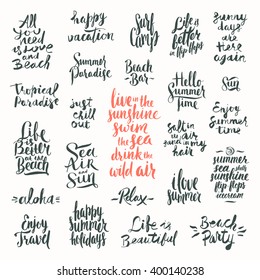 All
You
need
is Love
and
Beach
happy
vacation
Surf
Camp
Life
is
better
in
flip
flops
Sunny
days
are
Here
again
Tropical
Paradise
Summer
Paradise
Beach
-Bar-
Hello
Summer
Time
Sun
just
chill
out
live in the
sunshine
swim
the sea
drink the
wild air
Salt in
the air
Sand in my
hair
Enjoy
Summer
time
Life
is
Better
on the
Beach
Sea
Air
and
Sun
-aloha-
-Relax-
I love
summer
summer
sea
salt
sunshine
flip flops
icecream
Enjoy
Travel
happy
summer
holidays
Life is
Beautiful
Beach
Party
shutterstock
IMAGE ID: 400140238
www.shutterstock.com